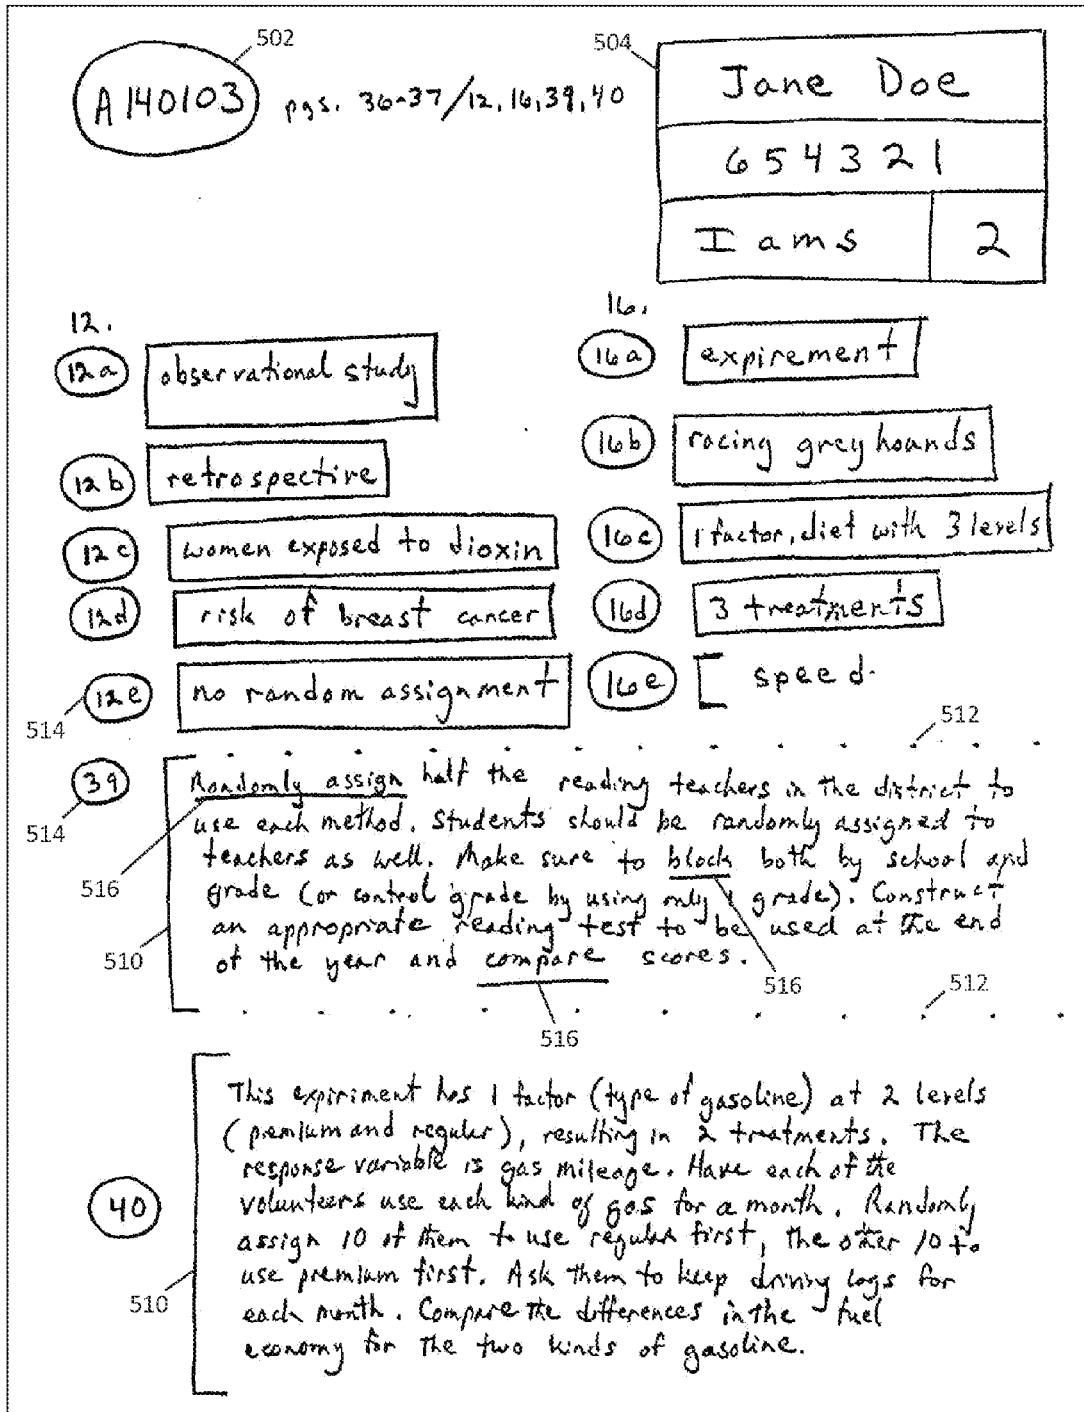 502
504
A140103 pgs. 36-37/12,16,39,40
Jane Doe
654321
Iams 2
12.
12a observational study
12b retrospective
12c women exposed to dioxin
12d risk of breast cancer
12e no random assignment
514
16.
16a expirement
16b racing greyhounds
16c 1 factor, diet with 3 levels
16d 3 treatments
16e speed
512
39
514
Randomly assign half the reading teachers in the district to
use each method. Students should be randomly assigned to
teachers as well. Make sure to block both by school and
grade (or control grade by using only 1 grade). Construct
an appropriate reading test to be used at the end
of the year and compare scores.
516
510
516
512
516
40
This expiriment has 1 factor (type of gasoline) at 2 levels
(premium and regular), resulting in 2 treatments. The
response variable is gas mileage. Have each of the
volunteers use each kind of gas for a month. Randomly
assign 10 of them to use regular first, the other 10 to
use premium first. Ask them to keep driving logs for
each month. Compare the differences in the fuel
economy for the two kinds of gasoline.
510